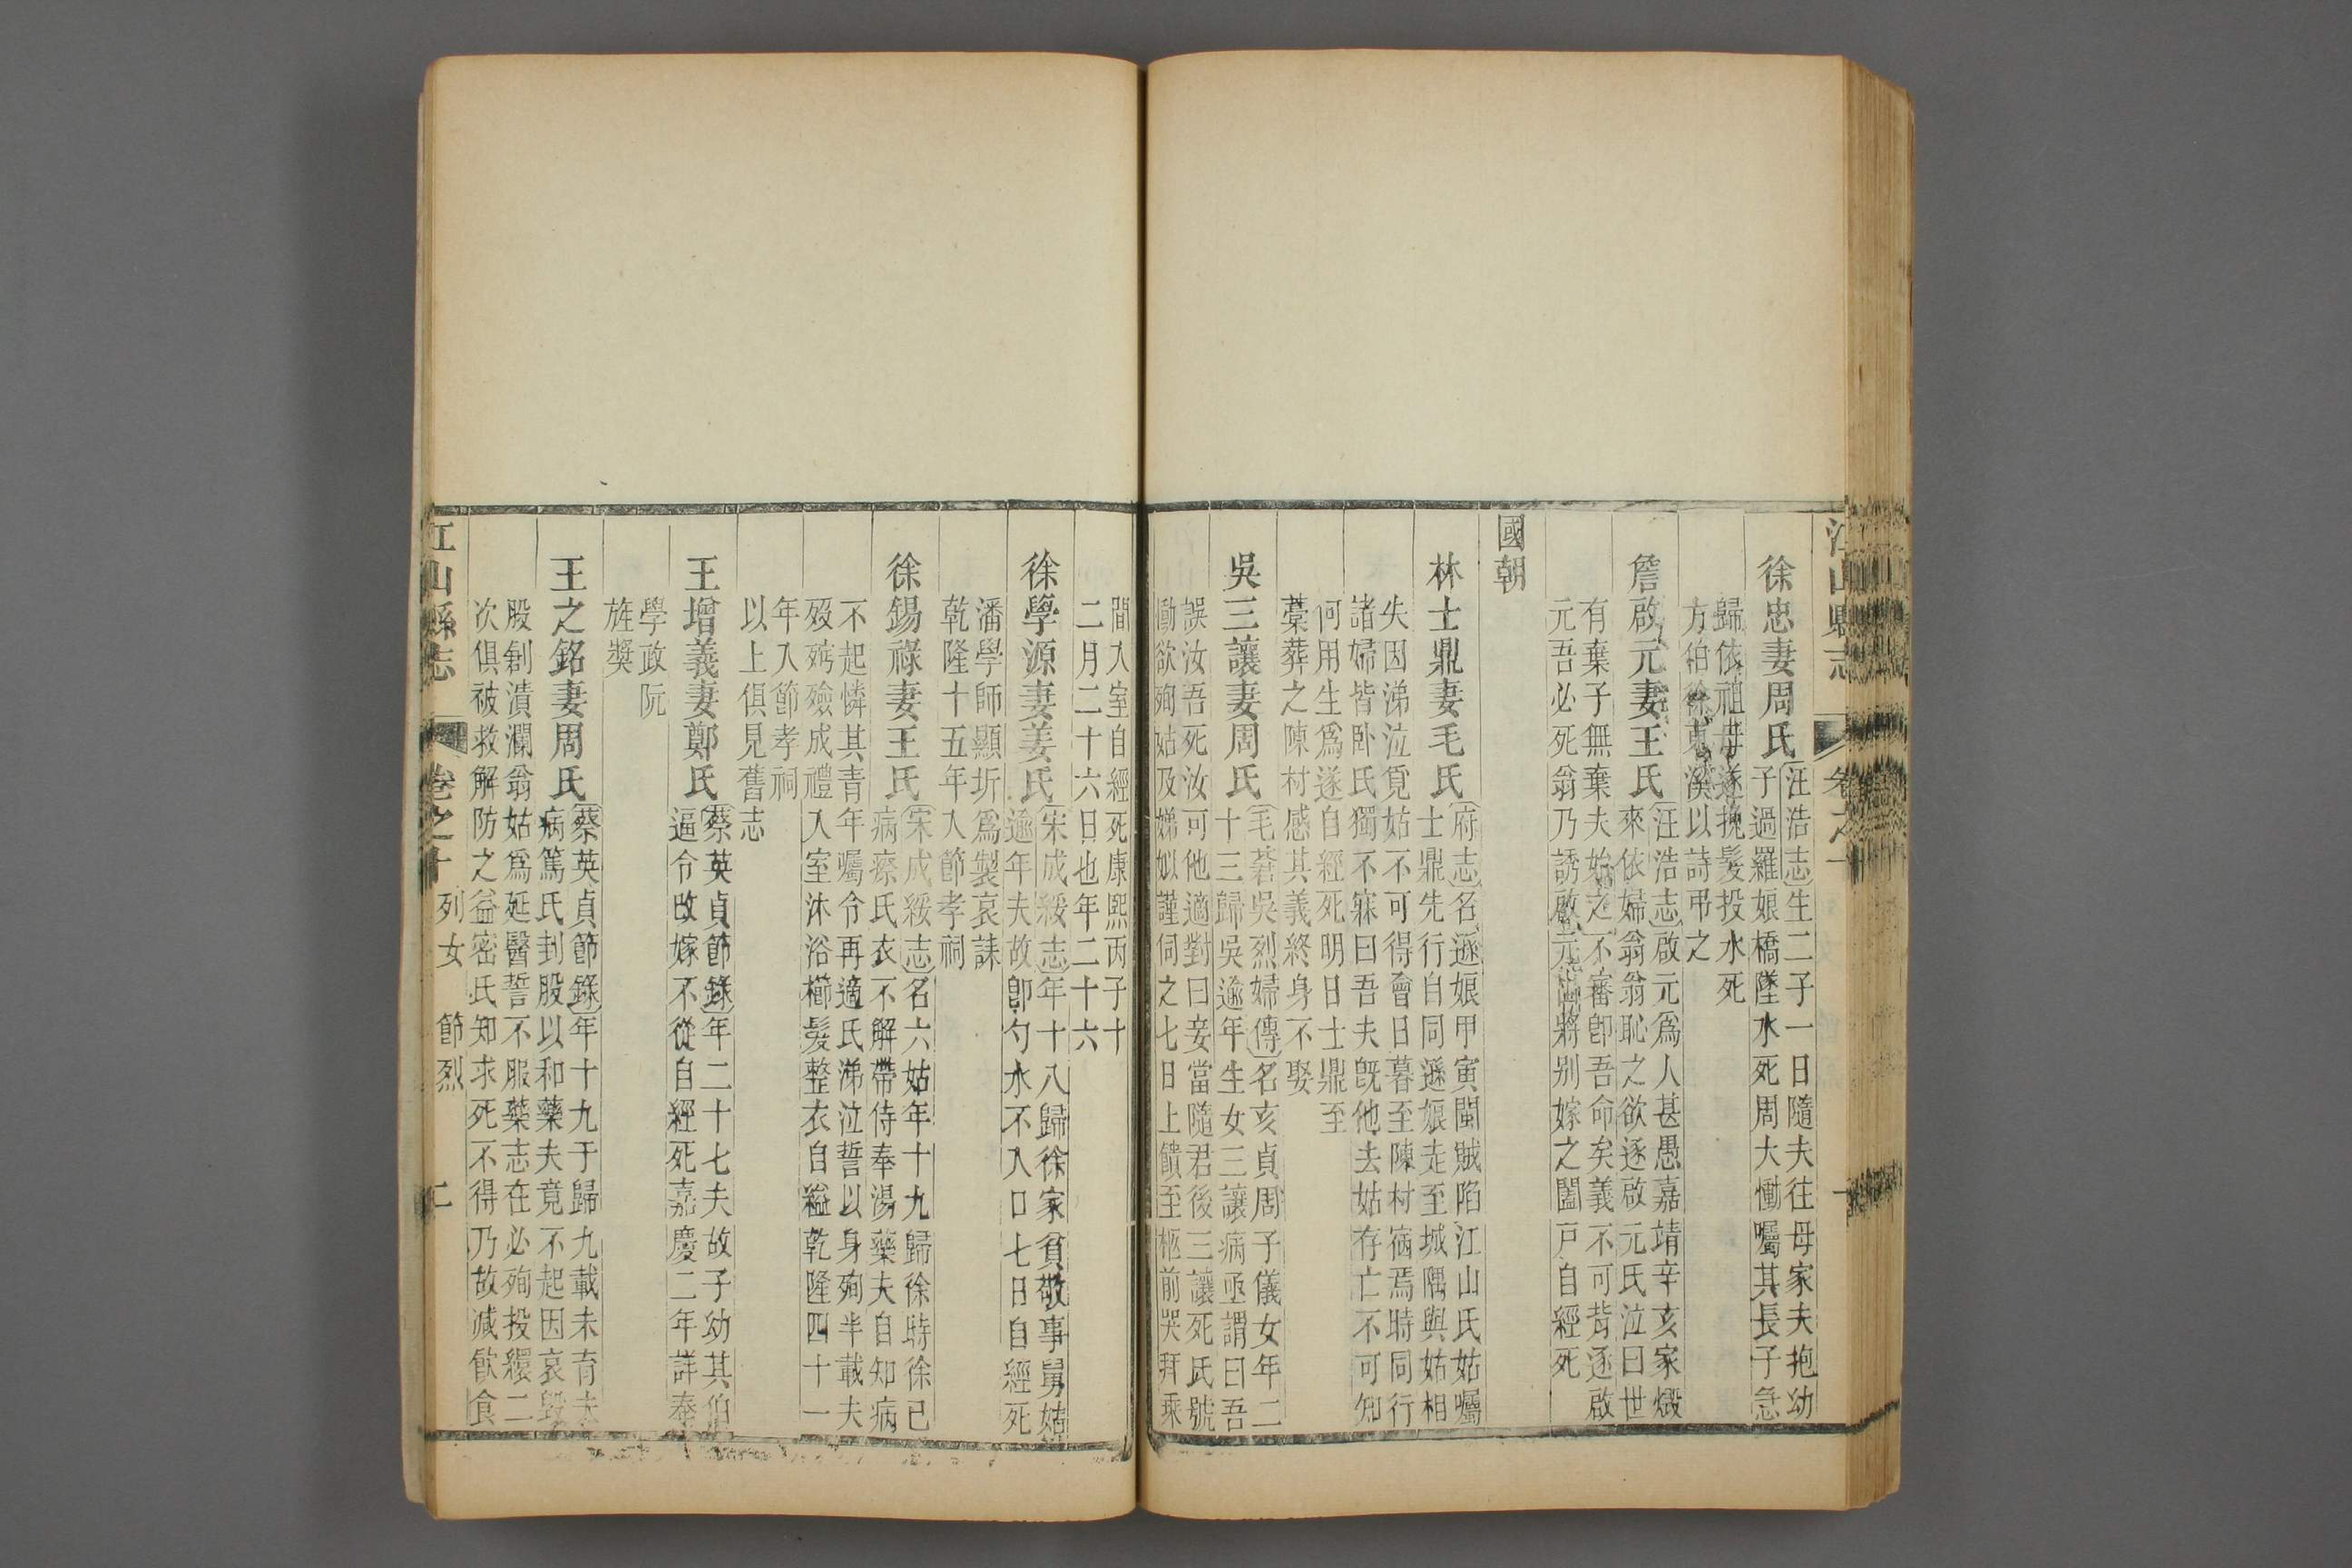 江山縣志
卷之十
徐忠妻周氏
汪浩志生二子一日隨夫往母家夫抱幼
子過羅娘橋墜水死周大慟囑其長子急
歸依祖母遂挽髮投水死
方伯徐東溪以詩弔之
詹啟元妻王氏
汪浩志啟元為人甚愚嘉靖辛亥家燬
來依婦翁翁恥之欲逐啟元氏泣曰世
有棄子無棄夫始之不審卽吾命矣義不可背逐啟
元吾必死翁乃誘啟元出將别嫁之闔戸自經死
國朝
林士鼎妻毛氏
府志名遜娘甲寅閩賊陷江山氏姑囑
士鼎先行自同遜娘走至城隅與姑相
失因涕泣覓姑不可得會日暮至陳村宿焉時同行
諸婦皆卧氏獨不寐曰吾夫旣他去姑存亡不可知
何用生爲遂自經死明日士鼎至
藁葬之陳村感其義終身不娶
吳三讓妻周氏
毛莙吳烈婦傳名亥貞周子儀女年二
十三歸吳逾年生女三讓病亟謂曰吾
誤汝吾死汝可他適對曰妾當隨君後三讓死氏號
慟欲殉姑及娣姒謹伺之七日上饋至柩前哭拜乘
間入室自經死康熙丙子十
二月二十六日也年二十六
徐學源妻姜氏
宋成綏志年十八歸徐家貧敬事舅姑
逾年夫故卽勺水不入口七日自經死
潘學師顯圻爲製哀誄
乾隆十五年入節孝祠
徐錫祿妻王氏
宋成綏志名六姑年十九歸徐時徐已
病瘵氏衣不解帶侍奉湯藥夫自知病
不起憐其青年囑令再適氏涕泣誓以身殉半載夫
歿殡殮成禮入室沐浴櫛髮整衣自縊乾隆四十一
年入節孝祠
以上俱見舊志
王增義妻鄭氏
蔡英貞節錄年二十七夫故子幼其伯
逼令改嫁不從自經死嘉慶二年詳奉
學政阮
旌獎
王之銘妻周氏
蔡英貞節錄年十九于歸九載未育夫
病篤氏刲股以和藥夫竟不起因哀毀
股創潰瀾翁姑爲延醫誓不服藥志在必殉投繯二
次俱被救解防之益密氏知求死不得乃故減飲食
江山縣志
卷之十
列女
節烈
二